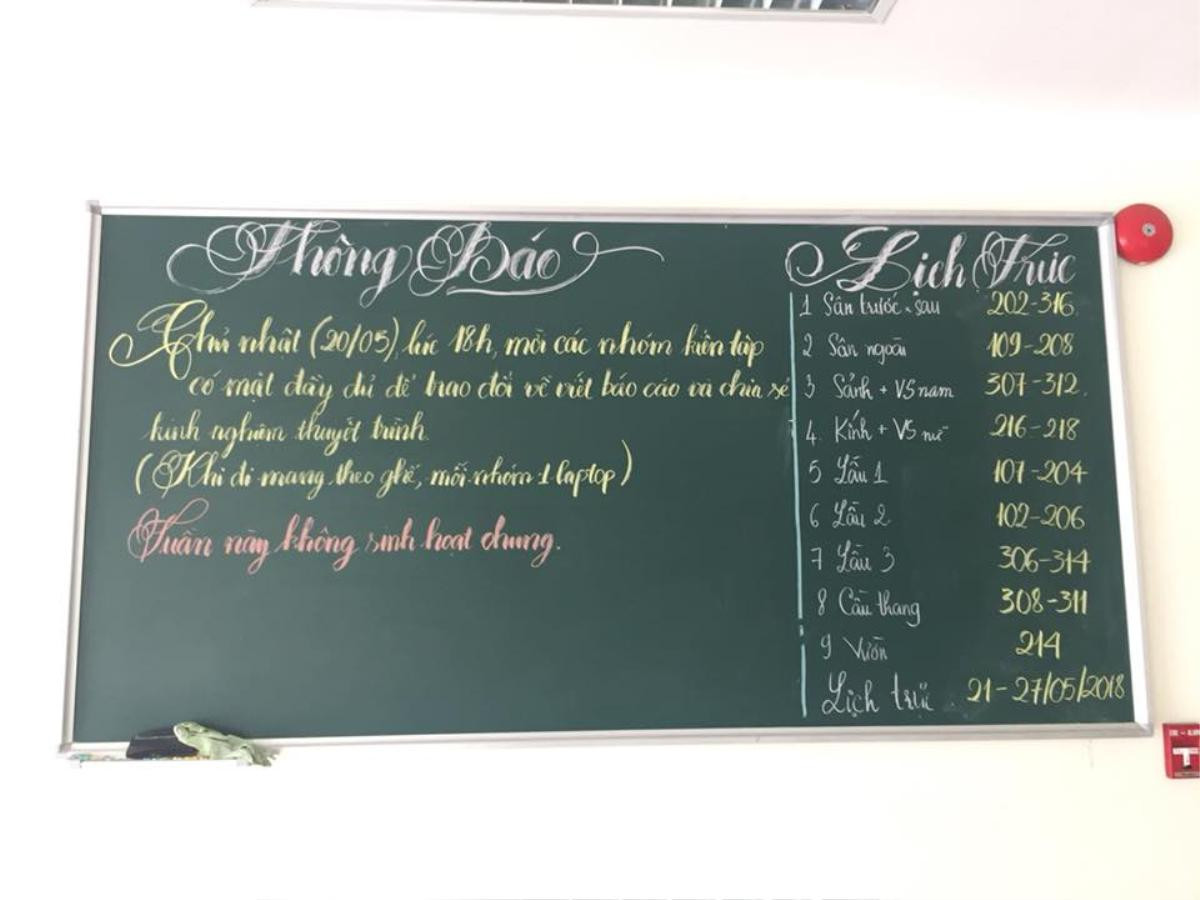 Thông Báo
Chủ nhật (20/05) lúc 18h, mời các nhóm kiến tập
có mặt đầy đủ để trao đổi về viết báo cáo và chia sẻ
kinh nghiệm thuyết trình.
(Khi đi mang theo ghế, mỗi nhóm 1 laptop)
Tuần này không sinh hoạt chung.
Lịch Trực
1 Sân trước, sau 202-316
2 Sân ngoài 109-208
3 Sảnh + VS nam 307-312.
4. Kính + VS nữ 216-218
5 Lầu 1 107-204
6 Lầu 2 102-206
7 Lầu 3 306-314
8 Cầu thang 308-311
9 Vườn 214
Lịch trực 21-27/05/2018